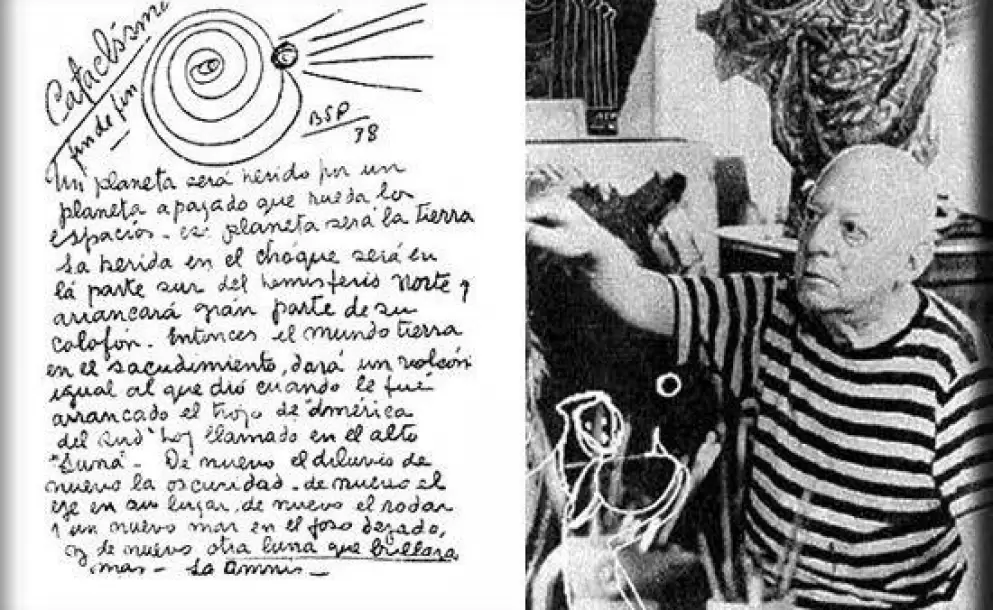 Cataclismo
fin de fin
BSP
38
Un planeta será herido por un
planeta apagado que rueda los
espacios - ese planeta será la tierra
La herida en el choque será en
la parte sur del hemisferio norte y
arrancará gran parte de su
colofón. Entonces el mundo tierra
en el sacudimiento, dará un volcón
igual al que dió cuando le fué
arrancado el trozo de "América
del Sud" hoy llamado en el alto
"Luna" - De nuevo el diluvio de
nuevo la oscuridad - de nuevo el
eje en su lugar, de nuevo el rodar
y un nuevo mar en el foso dejado,
y de nuevo otra luna que brillara
mas -